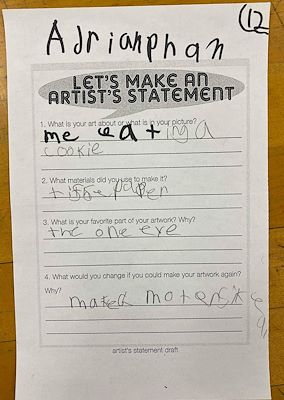 12
Adrianphan
LET'S MAKE AN
ARTIST'S STATEMENT
1. What is your art about or what is in your picture?
me eating a
cookie
2. What materials did you use to make it?
paper
3. What is your favorite part of your artwork? Why?
the one eye
4. What would you change if you could make your artwork again?
Why?
artist's statement draft